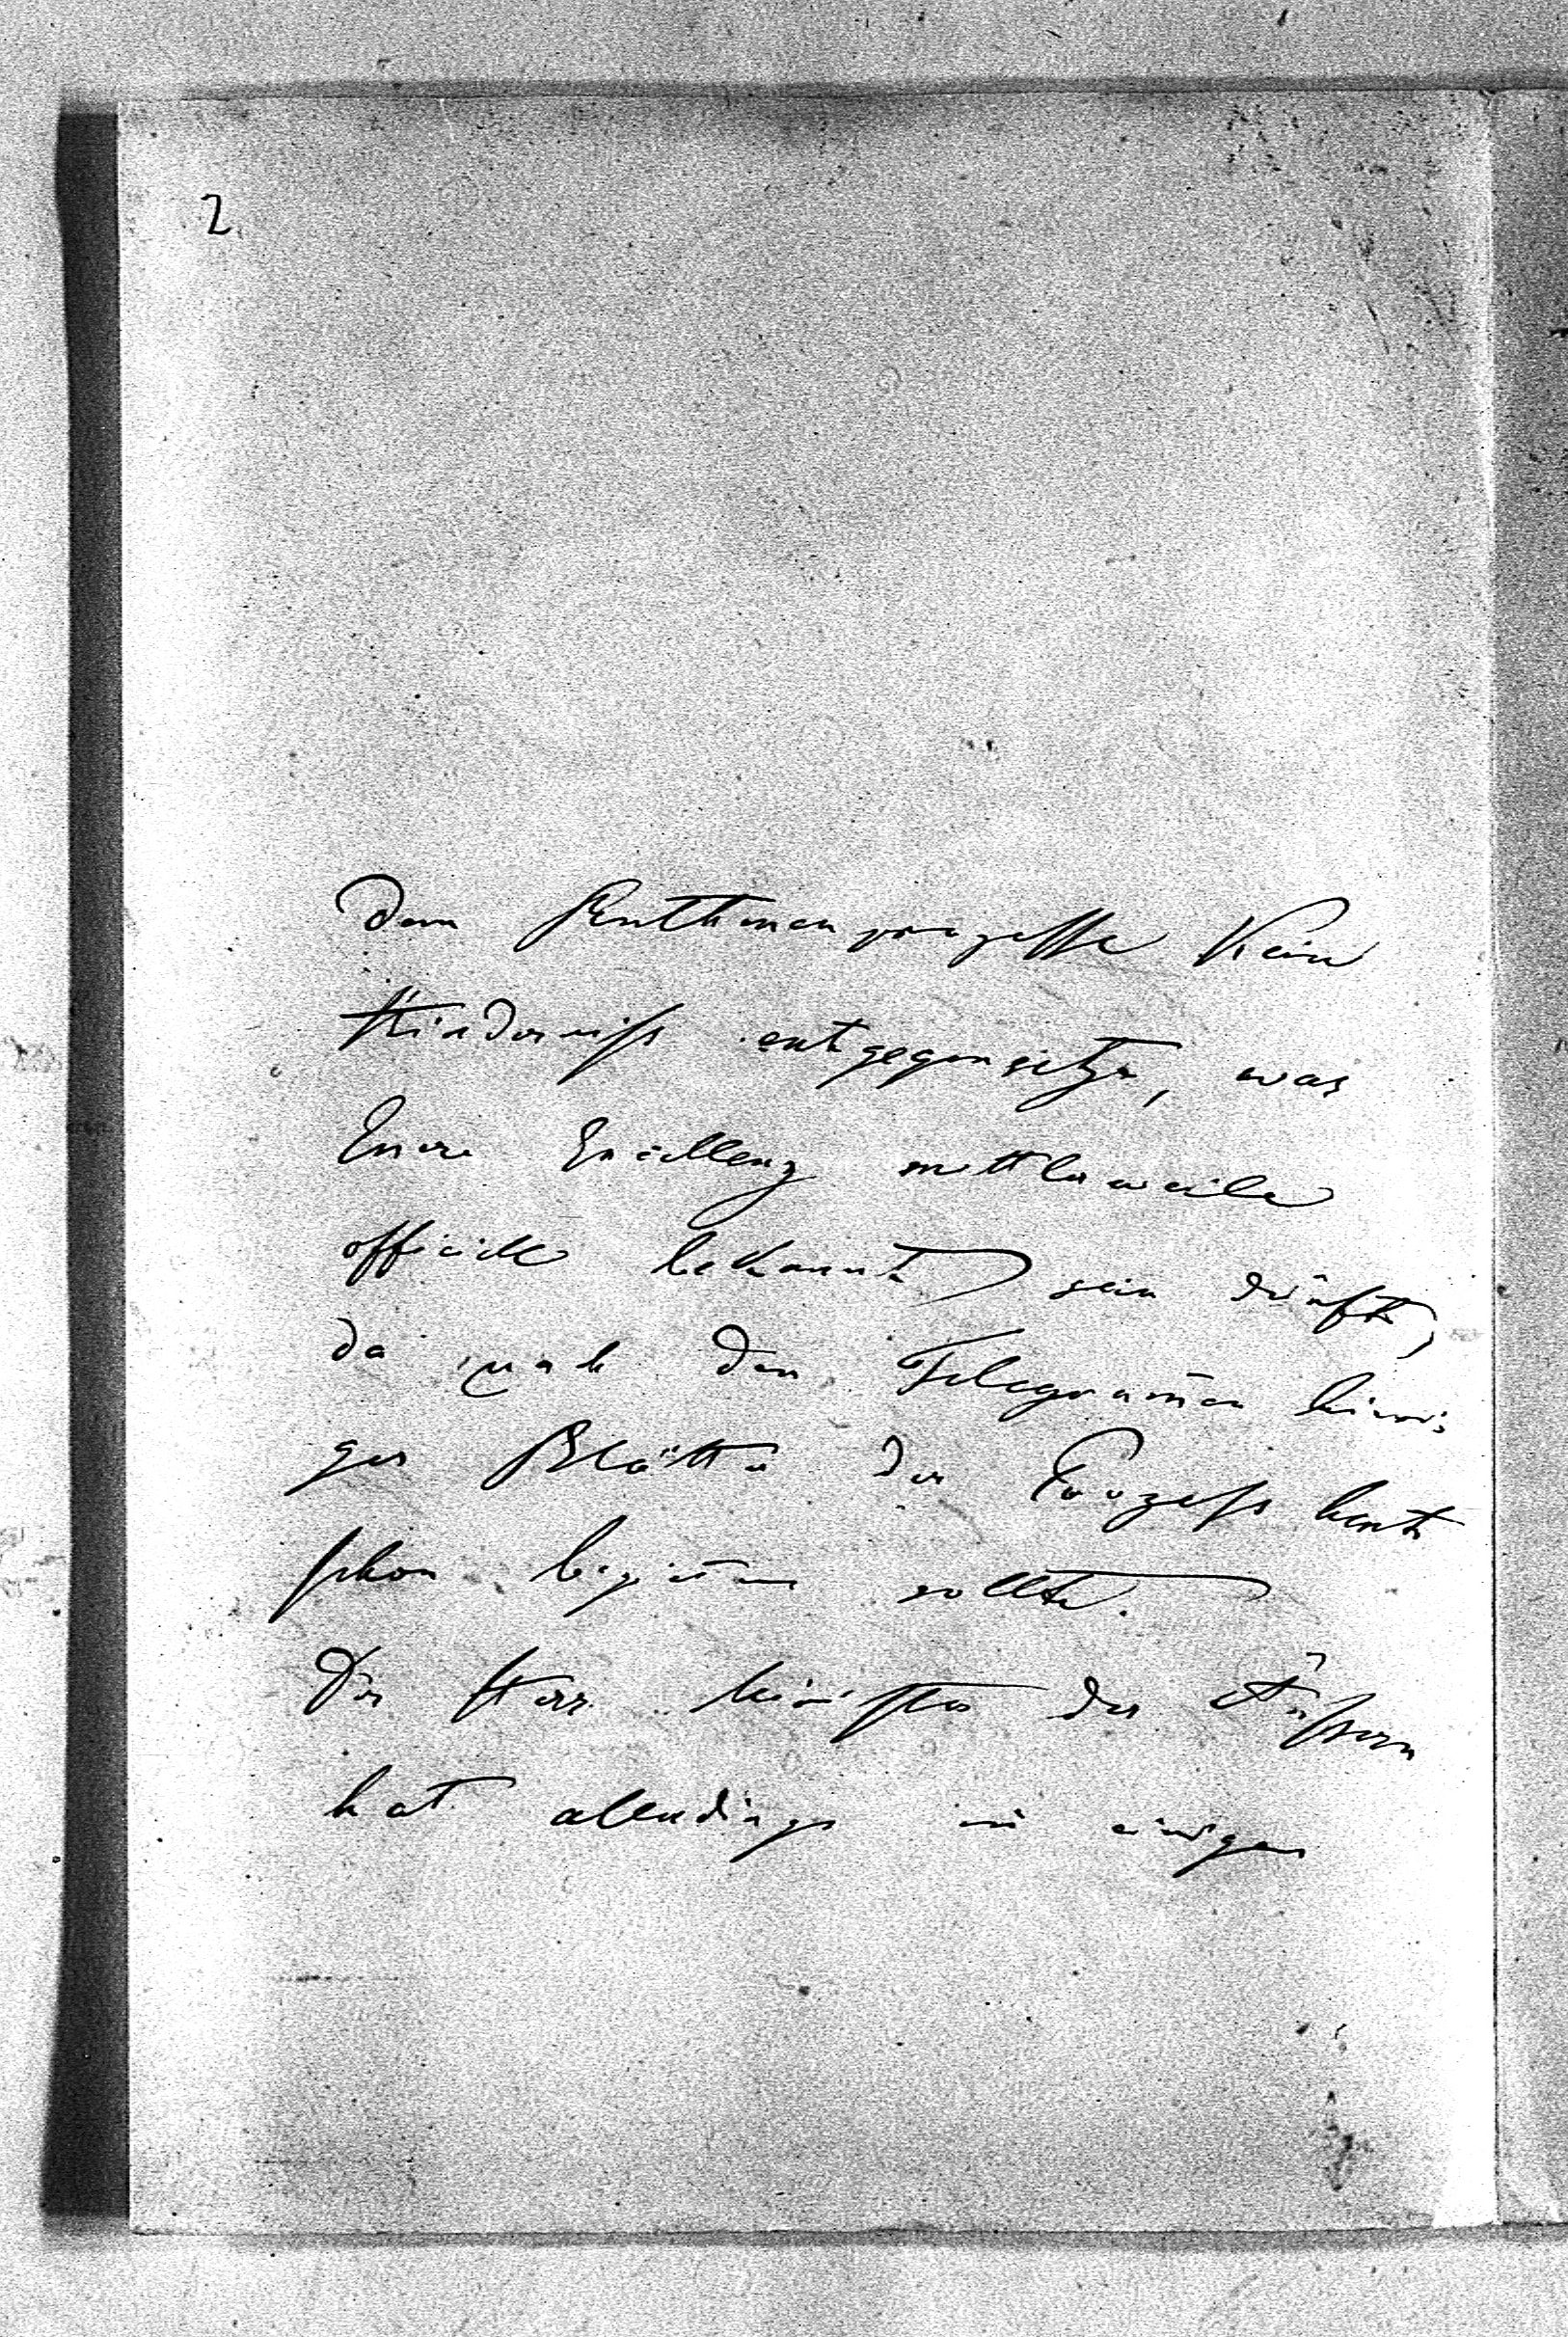 2
dem Ruthenenprozesse kein
Hinderniss entgegensetze, was
Euere Excellenz mittlerweile
officiell bekannt sein dürfte,
da nach den Telegram̅en hiesi-
ger Blätter der Prozess heute
schon begin̅en sollte.
Der Herr Minister des Äussern
hat allerdings in einigen